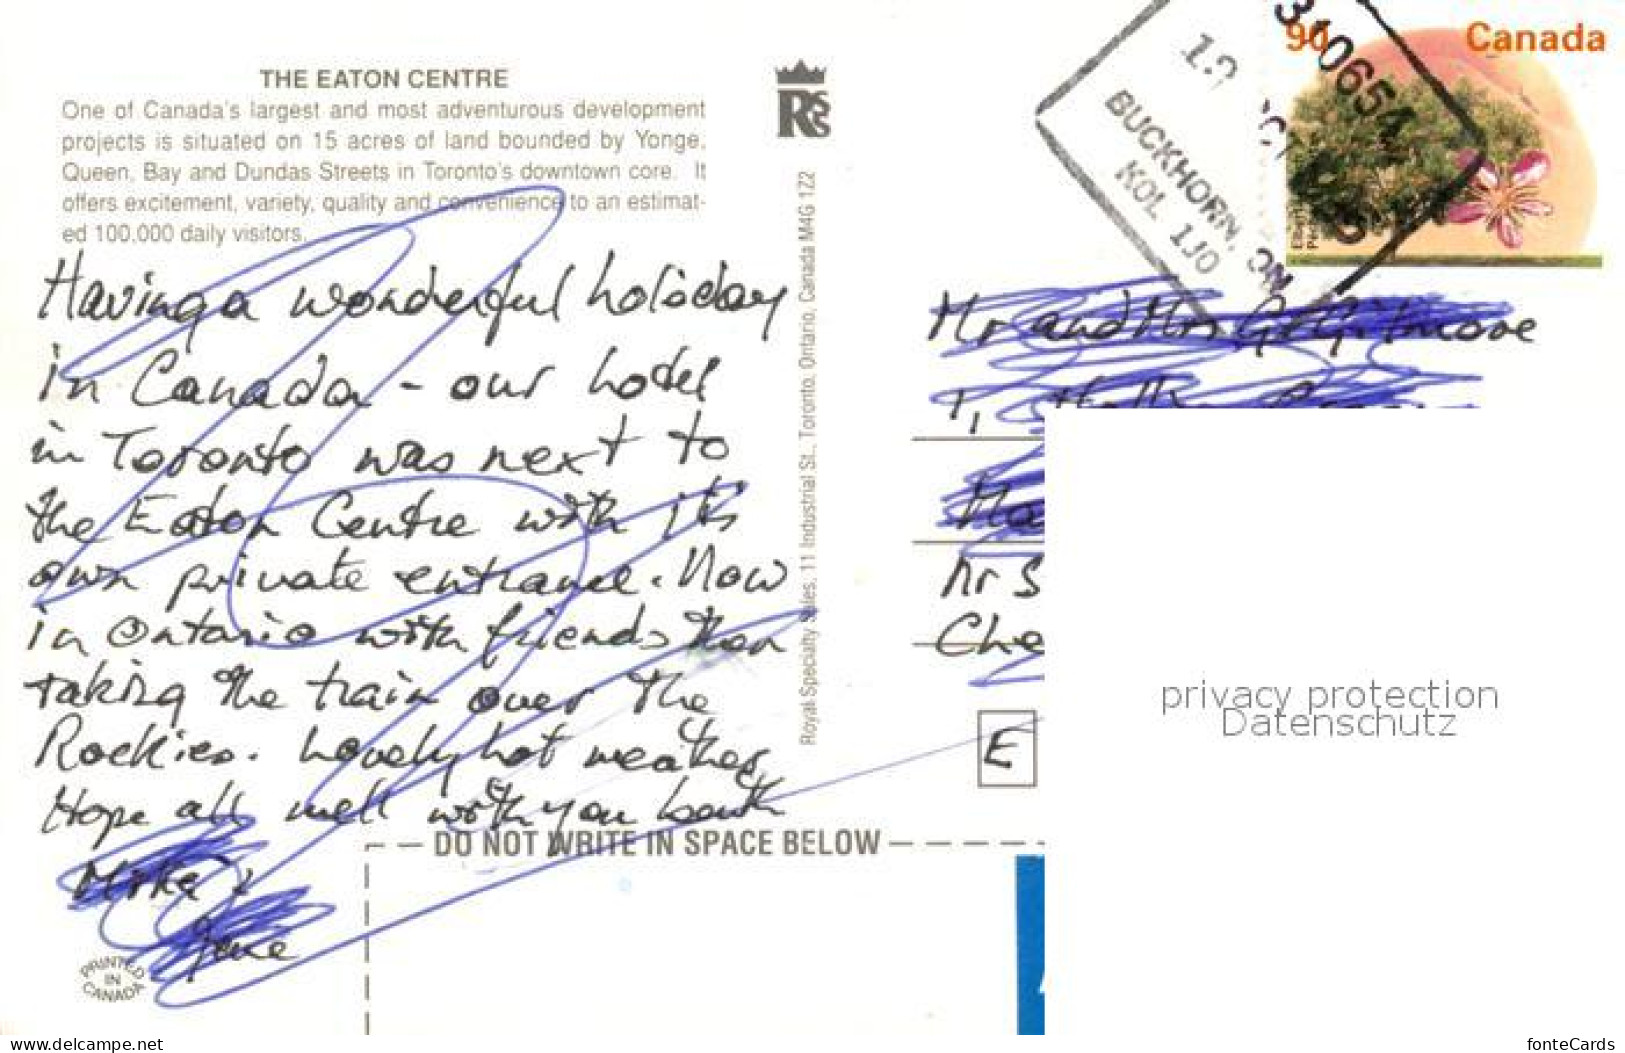 THE EATON CENTRE
One of Canada's largest and most adventurous development
projects is situated on 15 acres of land bounded by Yonge,
Queen, Bay and Dundas Streets in Toronto's downtown core. It
offers excitement, variety, quality and convenience to an estimat-
ed 100,000 daily visitors.
Having a wonderful holiday
in Canada - our hotel
in Toronto was next to
the Eaton Centre with its
own private entrance. Now
in Ontario with friends then
taking the train over the
Rockies. Lovely hot weather
Hope all well with you both
PRINTED
IN
CANADA
Royal Specialty Sales, 11 Industrial St., Toronto, Ontario, Canada M4G 1Z2
DO NOT WRITE IN SPACE BELOW
Canada
310654
BUCKHORN, ON
K0L 1J0
Mr and Mrs
E
privacy protection
Datenschutz
www.delcampe.net
fonteCards